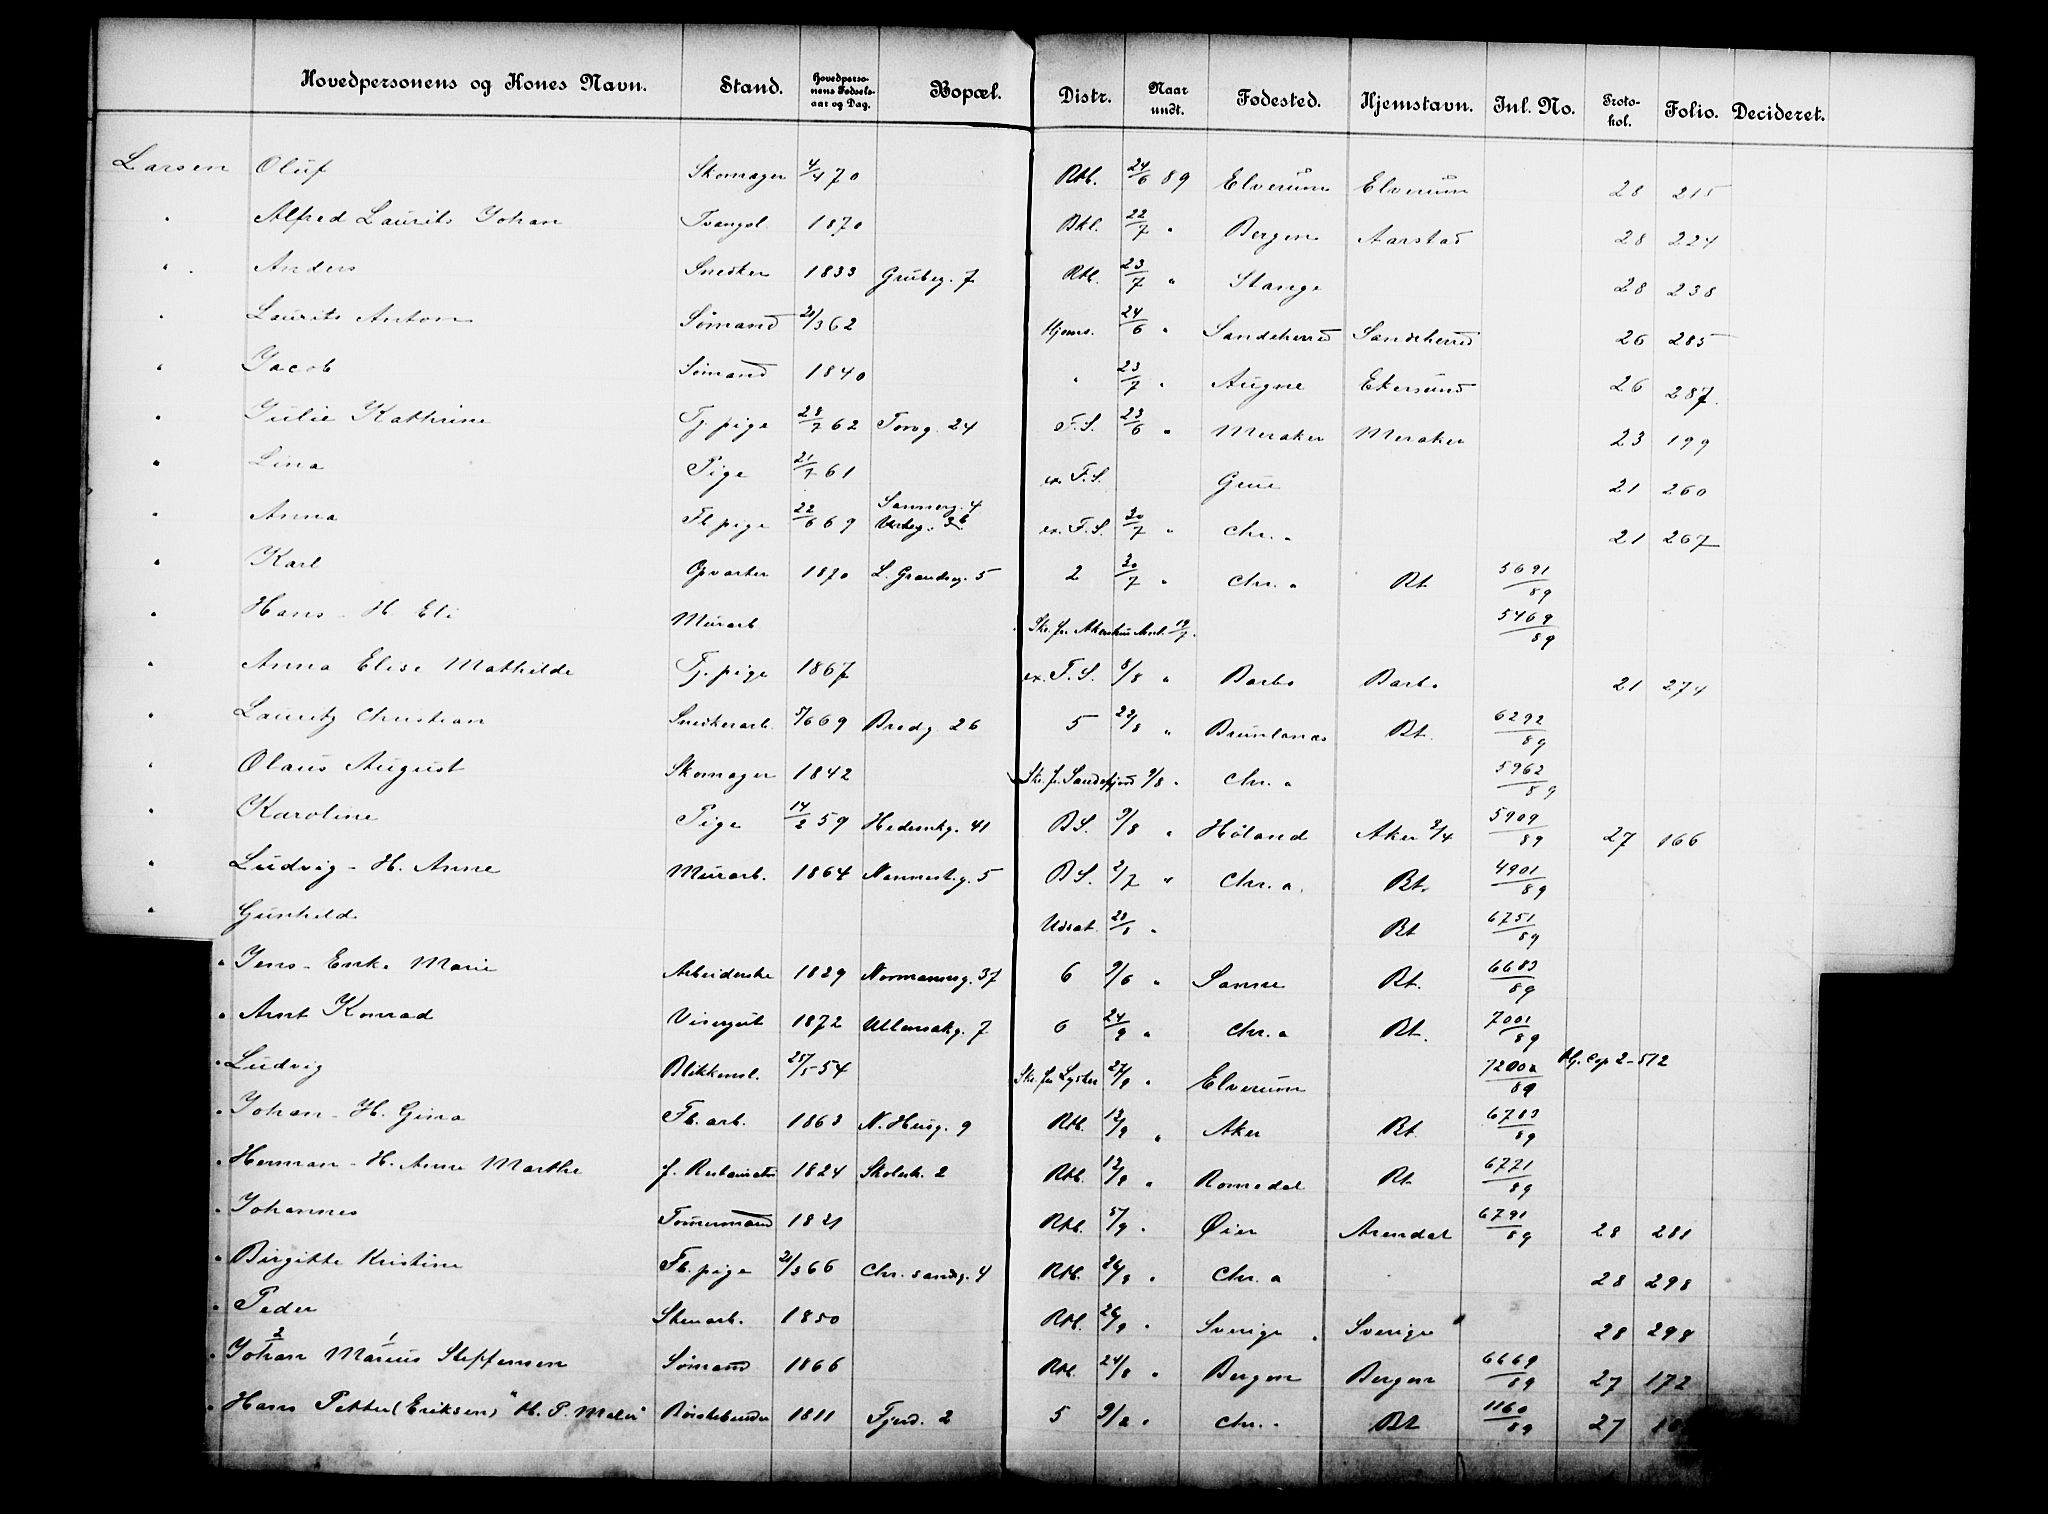 Hovedpersonens og Kones Navn. Stand. Hovedpersonens Fødselsaar og Dag. Bopæl. Distr. Naar undt. Fødested. Hjemstavn. Inl. No. Protokol. Folio. Decideret.
Larsen Oluf Skomager 4/4 70 Rtb. 24/6 89 Elverum Elverum 28 215
" Alfred Laurits Johan Tvangsl. 1870 Bkl. 22/7 " Bergen Aarstad 28 224
" Anders Snedker 1833 Grubeg. 7 Rtb. 23/7 " Stange 28 238
" Laurits Anton Sømand 20/3 62 Hjems. 24/6 " Sandeherred Sandeherred 26 285
" Jacob Sømand 1840 " 23/7 " Augne Ekersund 26 287.
" Julie Kathrine Tj. pige 28/7 62 Torvg. 24 F.S. 23/6 " Meraker Meraker 23 199
" Lina Pige 21/7 61 ex. F.S. Grue 21 260
" Anna Fb pige 22/6 69 Sannerg. 4 ex. F.S. 30/7 " Chr. a 21 267
" Karl Opvarter 1870 L. Grændseg. 5 2 30/7 " Chr. a Bt 5691/89
" Hans - H. Eli Murarb Skr. fr. Akershus Amt. 19/7. 5469/89
" Anna Elise Mathilde Tj. pige 1867 ex. F.S. 8/8 " Barbo Barbo 21 274
" Lauritz Christian Snedkerarb. 5/6 69 Bredg. 26 5 23/8 " Brunlanæs Bt. 6292/89
" Olaus August Skomager 1842 Skr. fr. Sandefjord 9/8 " Chr. a 5962/89
" Karoline Pige 14/2 59 Hedemkg. 41 BS. 9/8 " Høland Aker 2/4 5909/89 27 166
" Ludvig - H. Anne Murarb. 1864 Nannestg. 5 BS. 2/7 " Chr. a. Bt. 4901/89
" Gunhild Udsat. 28/8 " Bt 6751/89
" Jens - Enke Marie Arbeiderske 1829 Normannsg. 37 6 9/6 " Sanne Bt. 6683/89
" Arnt Konrad Visergut 1872 Ullensakg. 7 6 24/9 " Chr. a Bt. 7001/89
" Ludvig Blikkensl. 25/5 54 Skr. fra Lyster 27/9 " Elverum 7200/89 Cop 2-512
" Johan - H. Gina Fb. arb. 1863 N. Husg. 9 Rtb. 12/9 " Aker Bt. 6783/89
" Herman - H. Anne Marthe f. Restauratør 1824 Skolest. 2 Rtb. 12/9 " Romedal Bt 6771/89
" Johannes Tømmermand 1821 Rtb. 5/9 " Øier Arendal 6791/89 28 281
" Birgitte Kristine Fb. pige 20/3 66 Chr. sandsg. 4 Rtb. 26/9 " Chr. a 28 298
" Peder Stenarb. 1850 Rtb. 26/9 " Sverige Sverige 28 298
2 1
" Johan Marius Steffensen Sømand 1866 Rtb. 24/8 " Bergen Bergen 6669/89 27 172
" Hans Petter (Eriksen) H. P. Børstebinder 1811 Fjerd. 2 5 9/2 " Chr. a Bt 1160/89 27